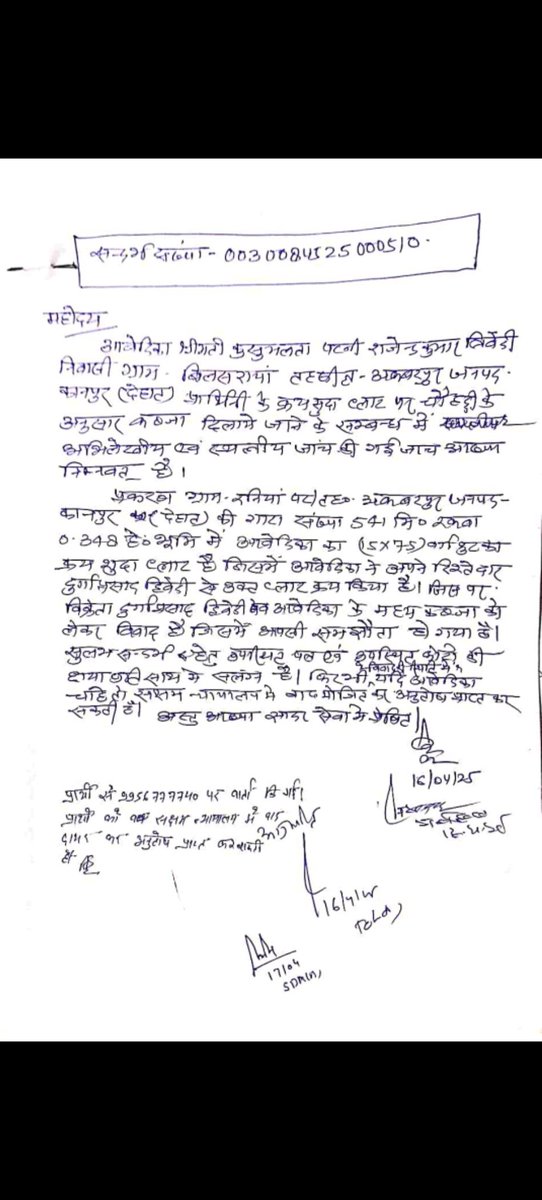 सन्दर्भ संख्या - 00300842525000510.
महोदय
आवेदिका श्रीमती कुसुमलता पत्नी राजेन्द्र कुमार त्रिवेदी
निवासी ग्राम - बिलसरायां तहसील - अकबरपुर जनपद -
कानपुर (देहात) प्रार्थिनी के क्रय सुदा प्लाट पर चौहद्दी के
अनुसार कब्जा दिलाये जाने के सम्बन्ध में
अभिलेखीय एवं स्थलीय जांच की गई जांच आख्या
निम्नवत् है।
प्रकरण ग्राम - रनियां तह० अकबरपुर जनपद -
कानपुर (देहात) की गाटा संख्या 541 मि० रकबा
0.348 हे० भूमि में आवेदिका का (15x75) वर्गफुट का
क्रय शुदा प्लाट है जिसमें आवेदिका ने अपने रिश्तेदार
दुर्गाप्रसाद द्विवेदी से उक्त प्लाट क्रय किया है। जिस पर
विक्रेता दुर्गाप्रसाद द्विवेदी एवं आवेदिका के मध्य कब्जा को
लेकर विवाद है जिसमें आपसी समझौता हो गया है।
सुलभ सन्दर्भ हेतु एवं उपस्थित फोटो की
छाया प्रति साथ में संलग्न है। फिर भी यदि आवेदिका
चाहे तो सक्षम न्यायालय में वाद योजित कर अनुतोष प्राप्त कर
सकती है। अस्तु आख्या सादर सेवा में प्रेषित।
16/04/25
प्रार्थी से 9956777740 पर वार्ता की गई।
प्रार्थी को सक्षम न्यायालय में वाद
दायर कर अनुतोष प्राप्त कर सकती
है
16/4/25
17/04
SDM(A)